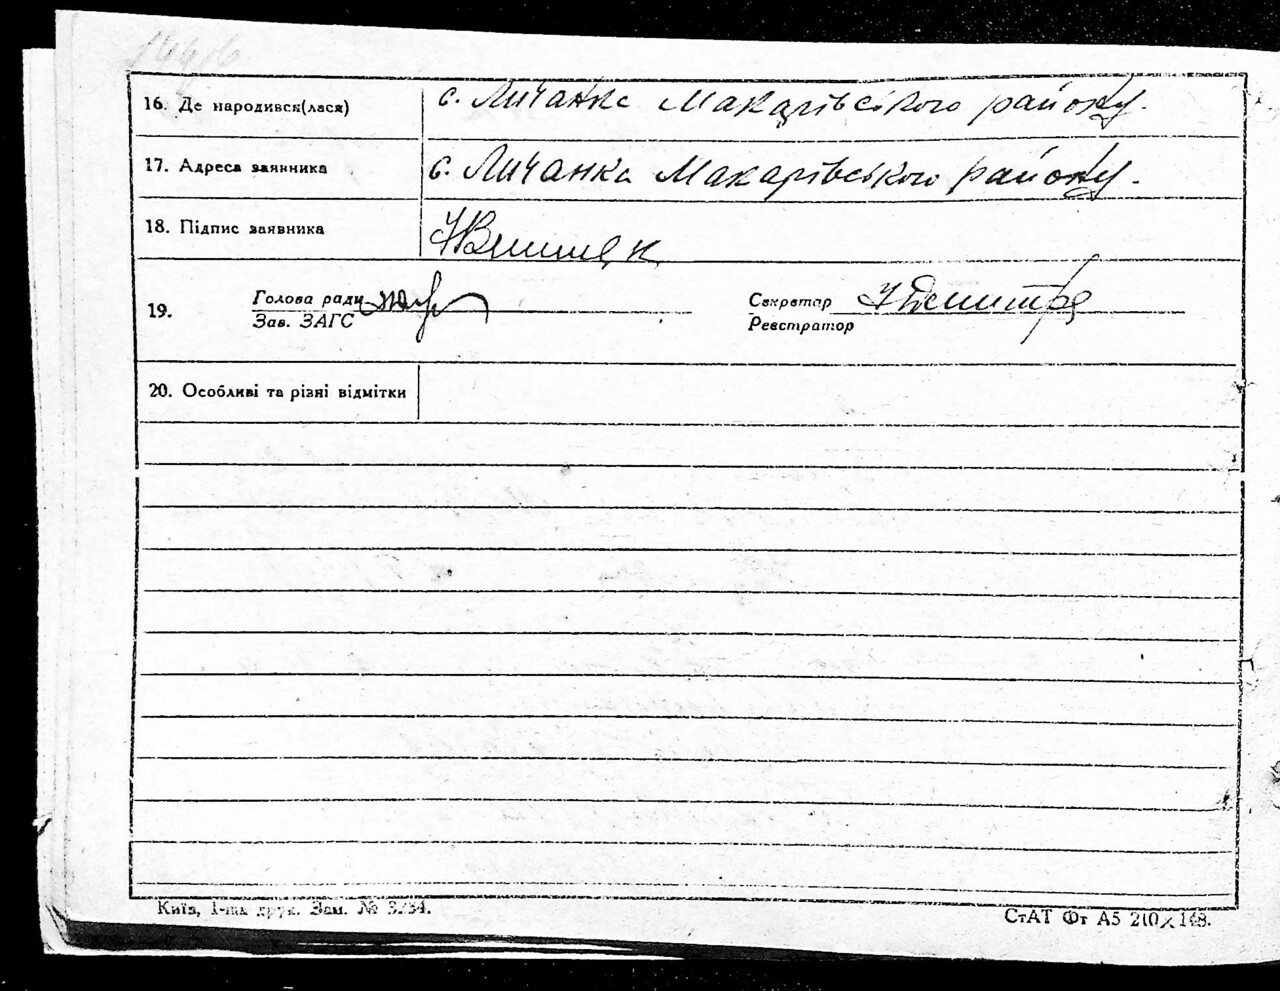 16. Де народився(лася) с. Личанка Макарівського району.
17. Адреса заявника с. Личанка Макарівського району.
18. Підпис заявника
19. Голова ради Секретар
Зав. ЗАГС Реєстратор
20. Особливі та різні відмітки
Київ, 1-ша друк. Зам. № 3234.
СтАТ Фт А5 210×148.